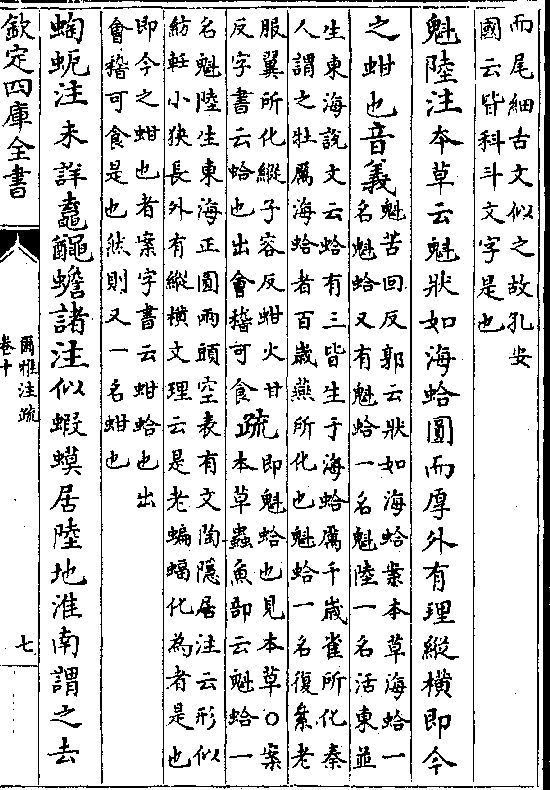 而尾細古文似之故孔安
國云皆科斗文字是也
魁陸注本草云魁狀如海蛤圓而厚外有理縱橫即今
之蚶也音義
魁苦回反郭云狀如海蛤案本草海蛤一
名魁蛤又有魁蛤一名魁陸一名活東並
生東海說文云蛤有三皆生于海蛤厲千歲雀所化秦
人謂之牡厲海蛤者百歲燕所化也魁蛤一名復絫老
服翼所化縱子容反蚶火甘
反字書云蛤也出會稽可食
疏
即魁蛤也見本草○案
本草蟲魚部云魁蛤一
名魁陸生東海正圓兩頭空表有文陶隱居注云形似
紡軠小狹長外有縱橫文理云是老蝙蝠化為者是也
即今之蚶也者案字書云蚶蛤也出
會稽可食是也然則又一名蚶也
蜪蚅注未詳鼁𪓰蟾諸注似蝦蟆居陸地淮南謂之去
欽定四庫全書
爾雅注疏
卷十
七